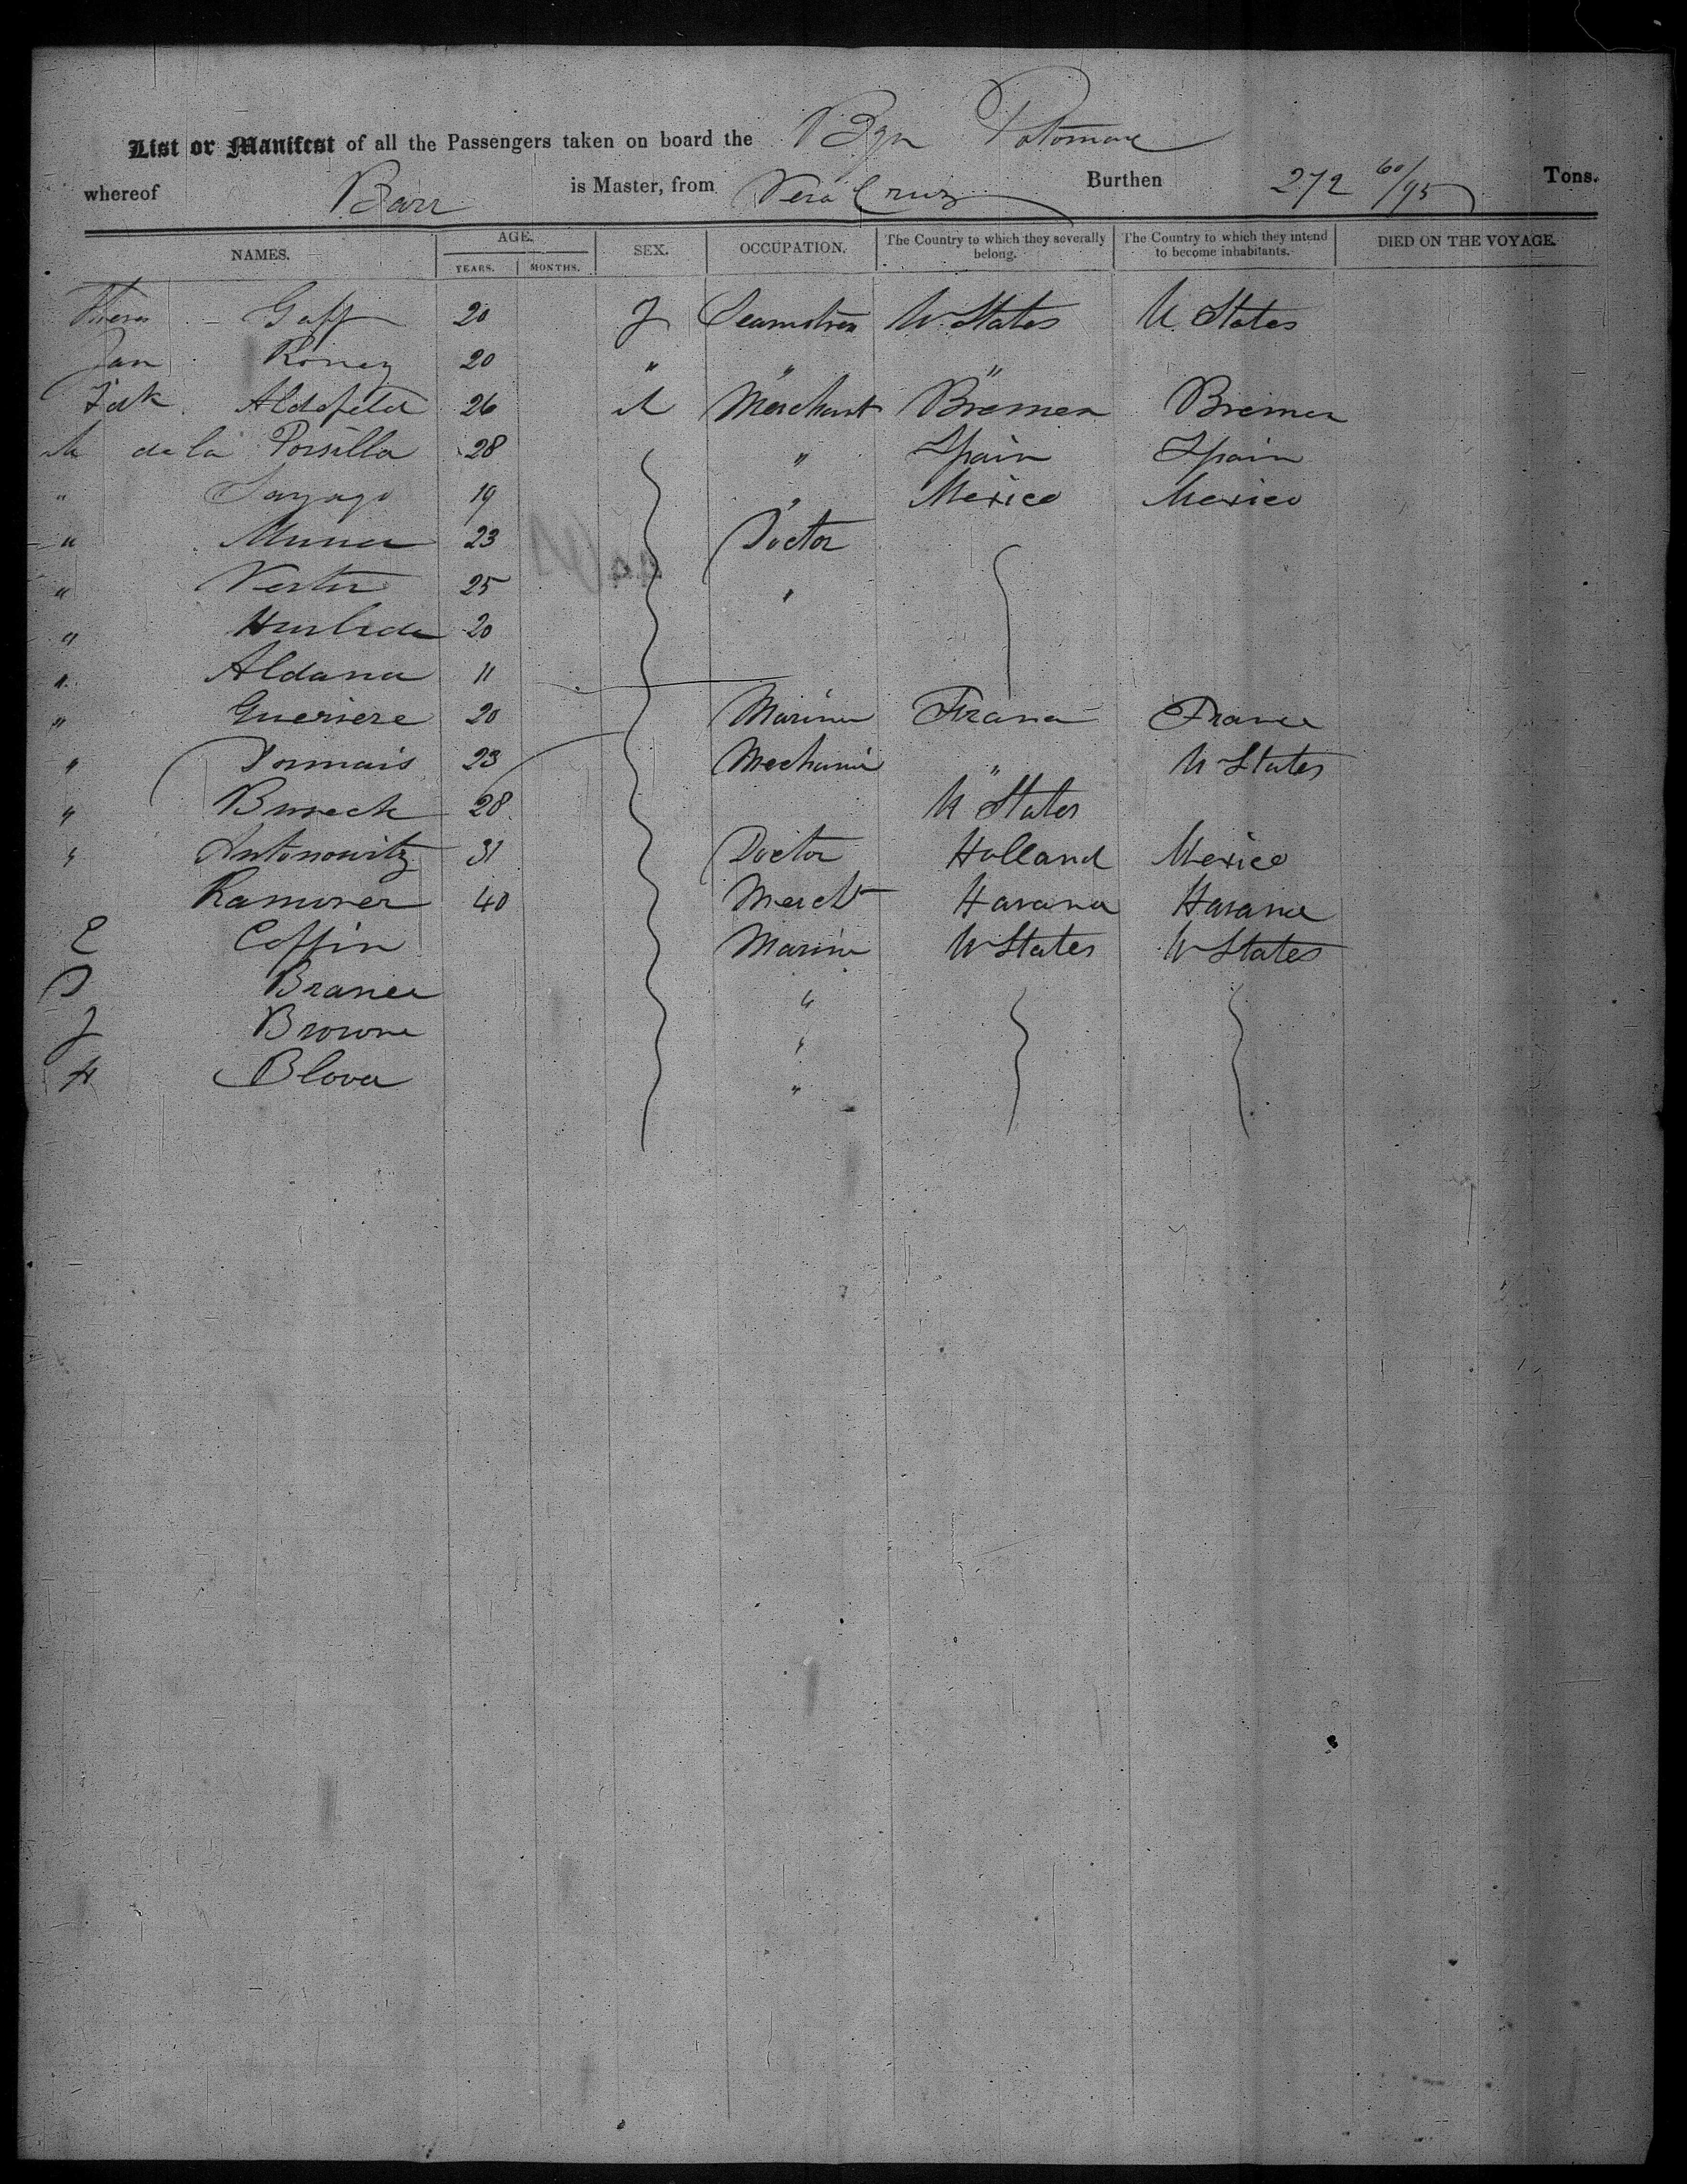 List or Manifest of all the Passengers taken on board the Bgn Potomac
whereof Barr is Master, from Vera Cruz Burthen 272 60/95 Tons.
NAMES. AGE. YEARS. MONTHS. SEX. OCCUPATION. The Country to which they severally belong. The Country to which they intend to become inhabitants. DIED ON THE VOYAGE.
Gaff 20 F Seamstress U States U States
Jan Roney 20 " " "
Fdk Aldsfeld 26 M Merchant Bremen Bremen
M de la Porsilla 28 " Spain Spain
" Sayago 19 " Mexico Mexico
" 23 Doctor
" 25 "
" 20
" Aldana 11
" Gueriere 20 Mariner France France
" 23 Mechanic " U States
" 28 U States
" Antonowitz 31 Doctor Holland Mexico
Ramirez 40 Mercht Havana Havana
E Coffin Marine U States U States
Branch "
J Browne "
H "